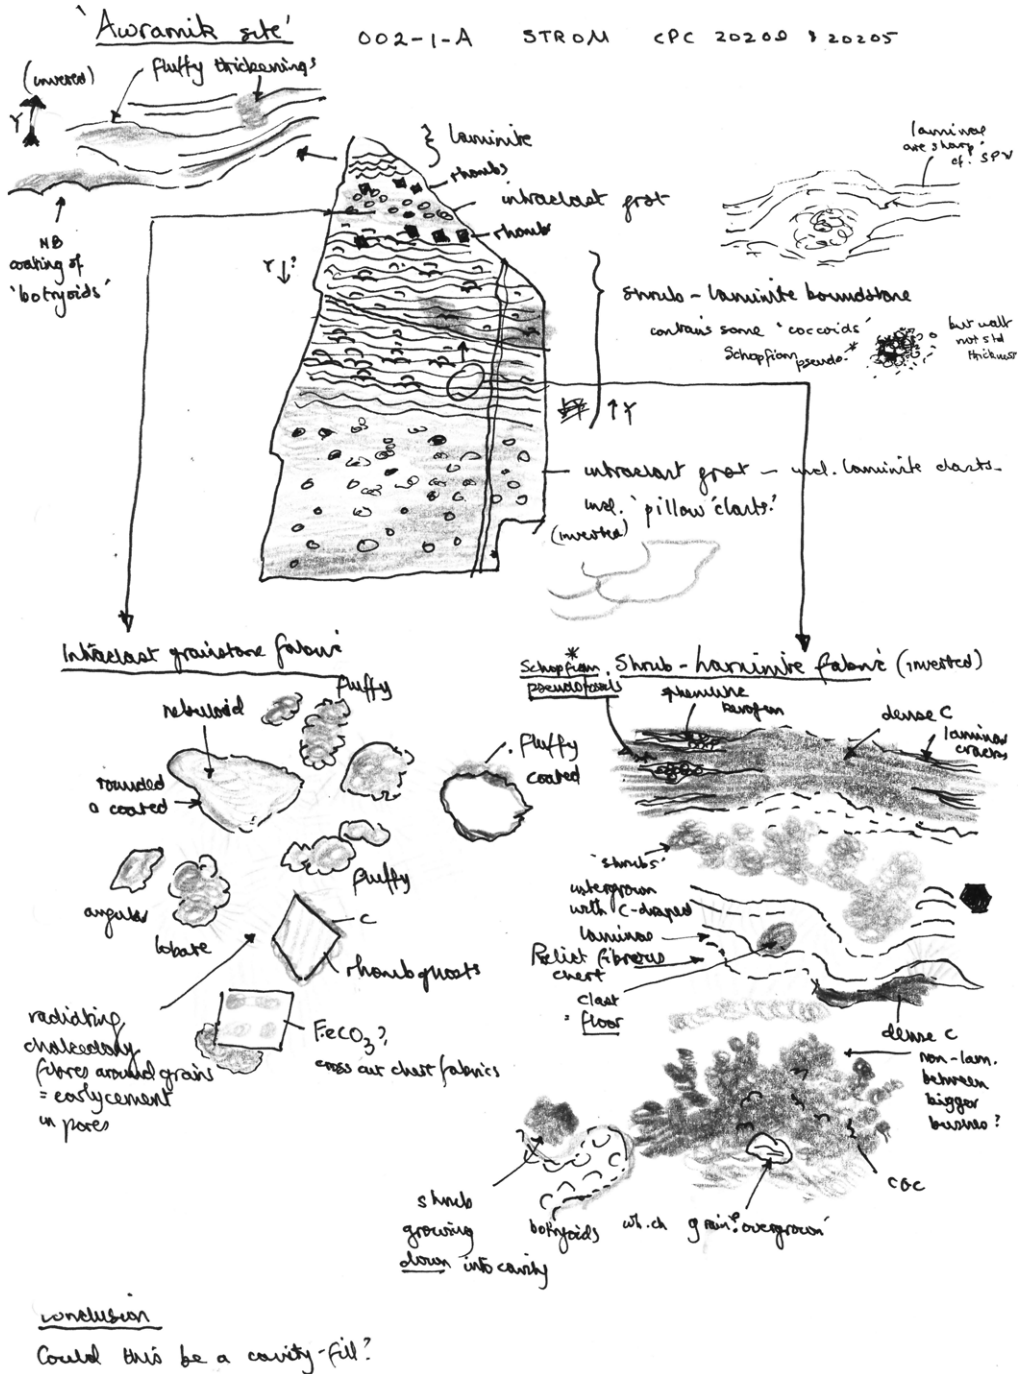 'Awramik site'
002-1-A STROM CPC 20200 & 20205
(inverted)
fluffy thickenings
Y
laminite
rhombs
intraclast grst
rhomb
NB
coating of
'botryoids'
Y ↓?
laminae
are sharp
cf. SPV
shrub-laminite boundstone
contains some 'coccoids'
Schopfian pseudo-*
but wall
not std
thickness
↑Y
intraclast grst - incl. laminite clasts-
incl. 'pillow clasts'
(inverted)
Intraclast grainstone fabric
nebuloid
fluffy
rounded
& coated
fluffy
coated
angular
lobate
fluffy
C
rhomb ghosts
FeCO3?
cross cut chert fabrics
radiating
chalcedony
fibres around grains
= early cement
in pores
*
Schopfian
pseudofossils
Shrub-laminite fabric (inverted)
kerogen
dense C
laminar
cracks
'shrubs'
intergrown
with C-draped
laminae
Relict fibrous
chert
clast
= floor
dense C
non-lam.
between
bigger
bushes?
shrub
growing
down into cavity
botryoids
wh. ch grain? 'overgrown'
conclusion
Could this be a cavity-fill?